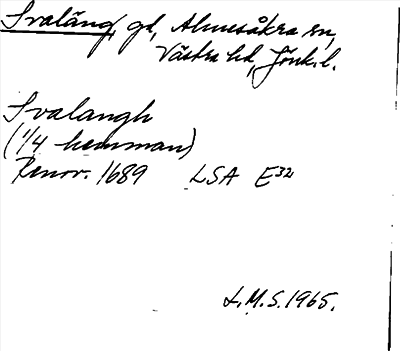 Svaläng, gd, Almesåkra sn,
Västra hd, Jönk. l.
Svalangh
(1/4 hemman)
Renov. 1689 LSA E32
L.M.S. 1965.